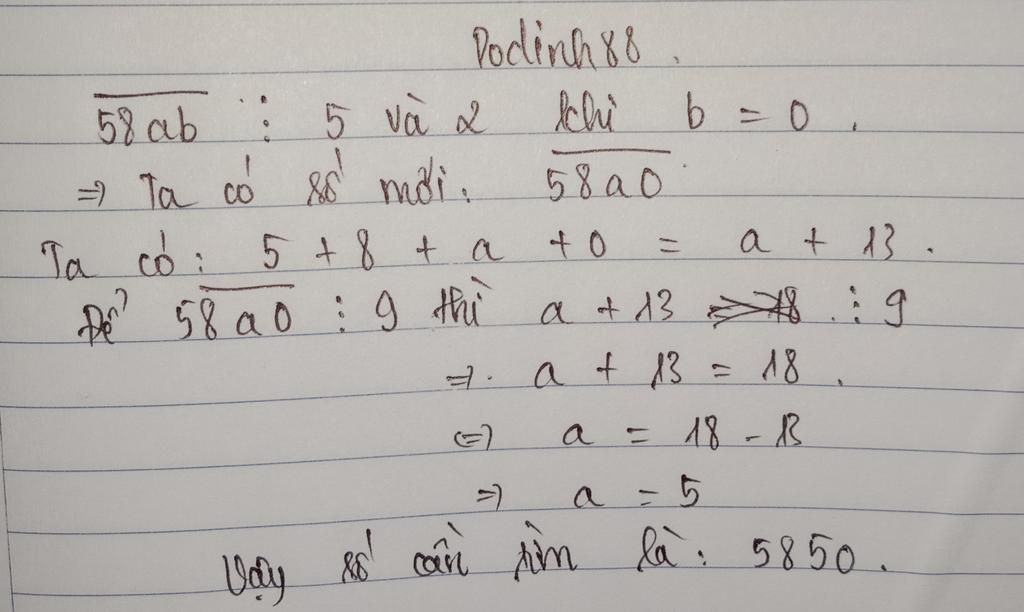 Dodinh88.
58ab ⋮ 5 và 2 khi b = 0.
=> Ta có số mới: 58a0
Ta có: 5 + 8 + a + 0 = a + 13.
Để 58a0 ⋮ 9 thì a + 13 ⋮ 9
=> a + 13 = 18.
<=> a = 18 - 13
=> a = 5
Vậy số cần tìm là: 5850.